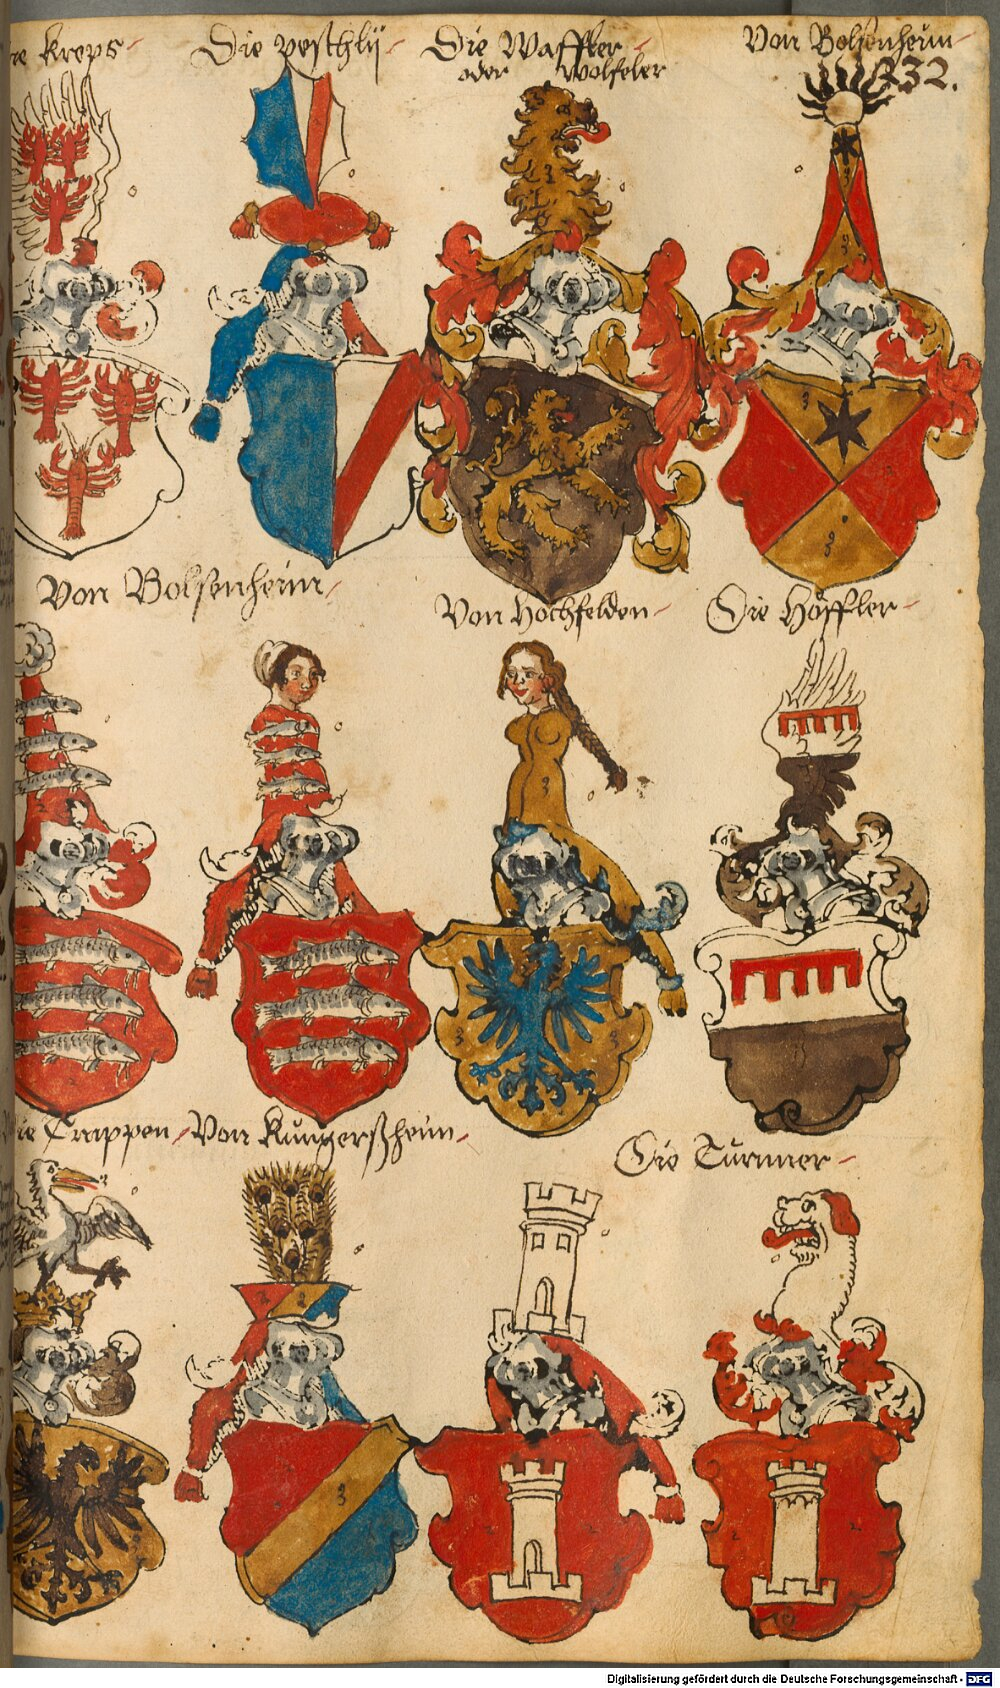 Kreps
Die veschly
Die Waffler
oder Wolfeler
Von Bolsenheim
232.
Von Bolsenheim
Von Hochfelden
Die Höffler
Die Trappen
Von Kungerßheim
Die Turnner
Digitalisierung gefördert durch die Deutsche Forschungsgemeinschaft - DFG